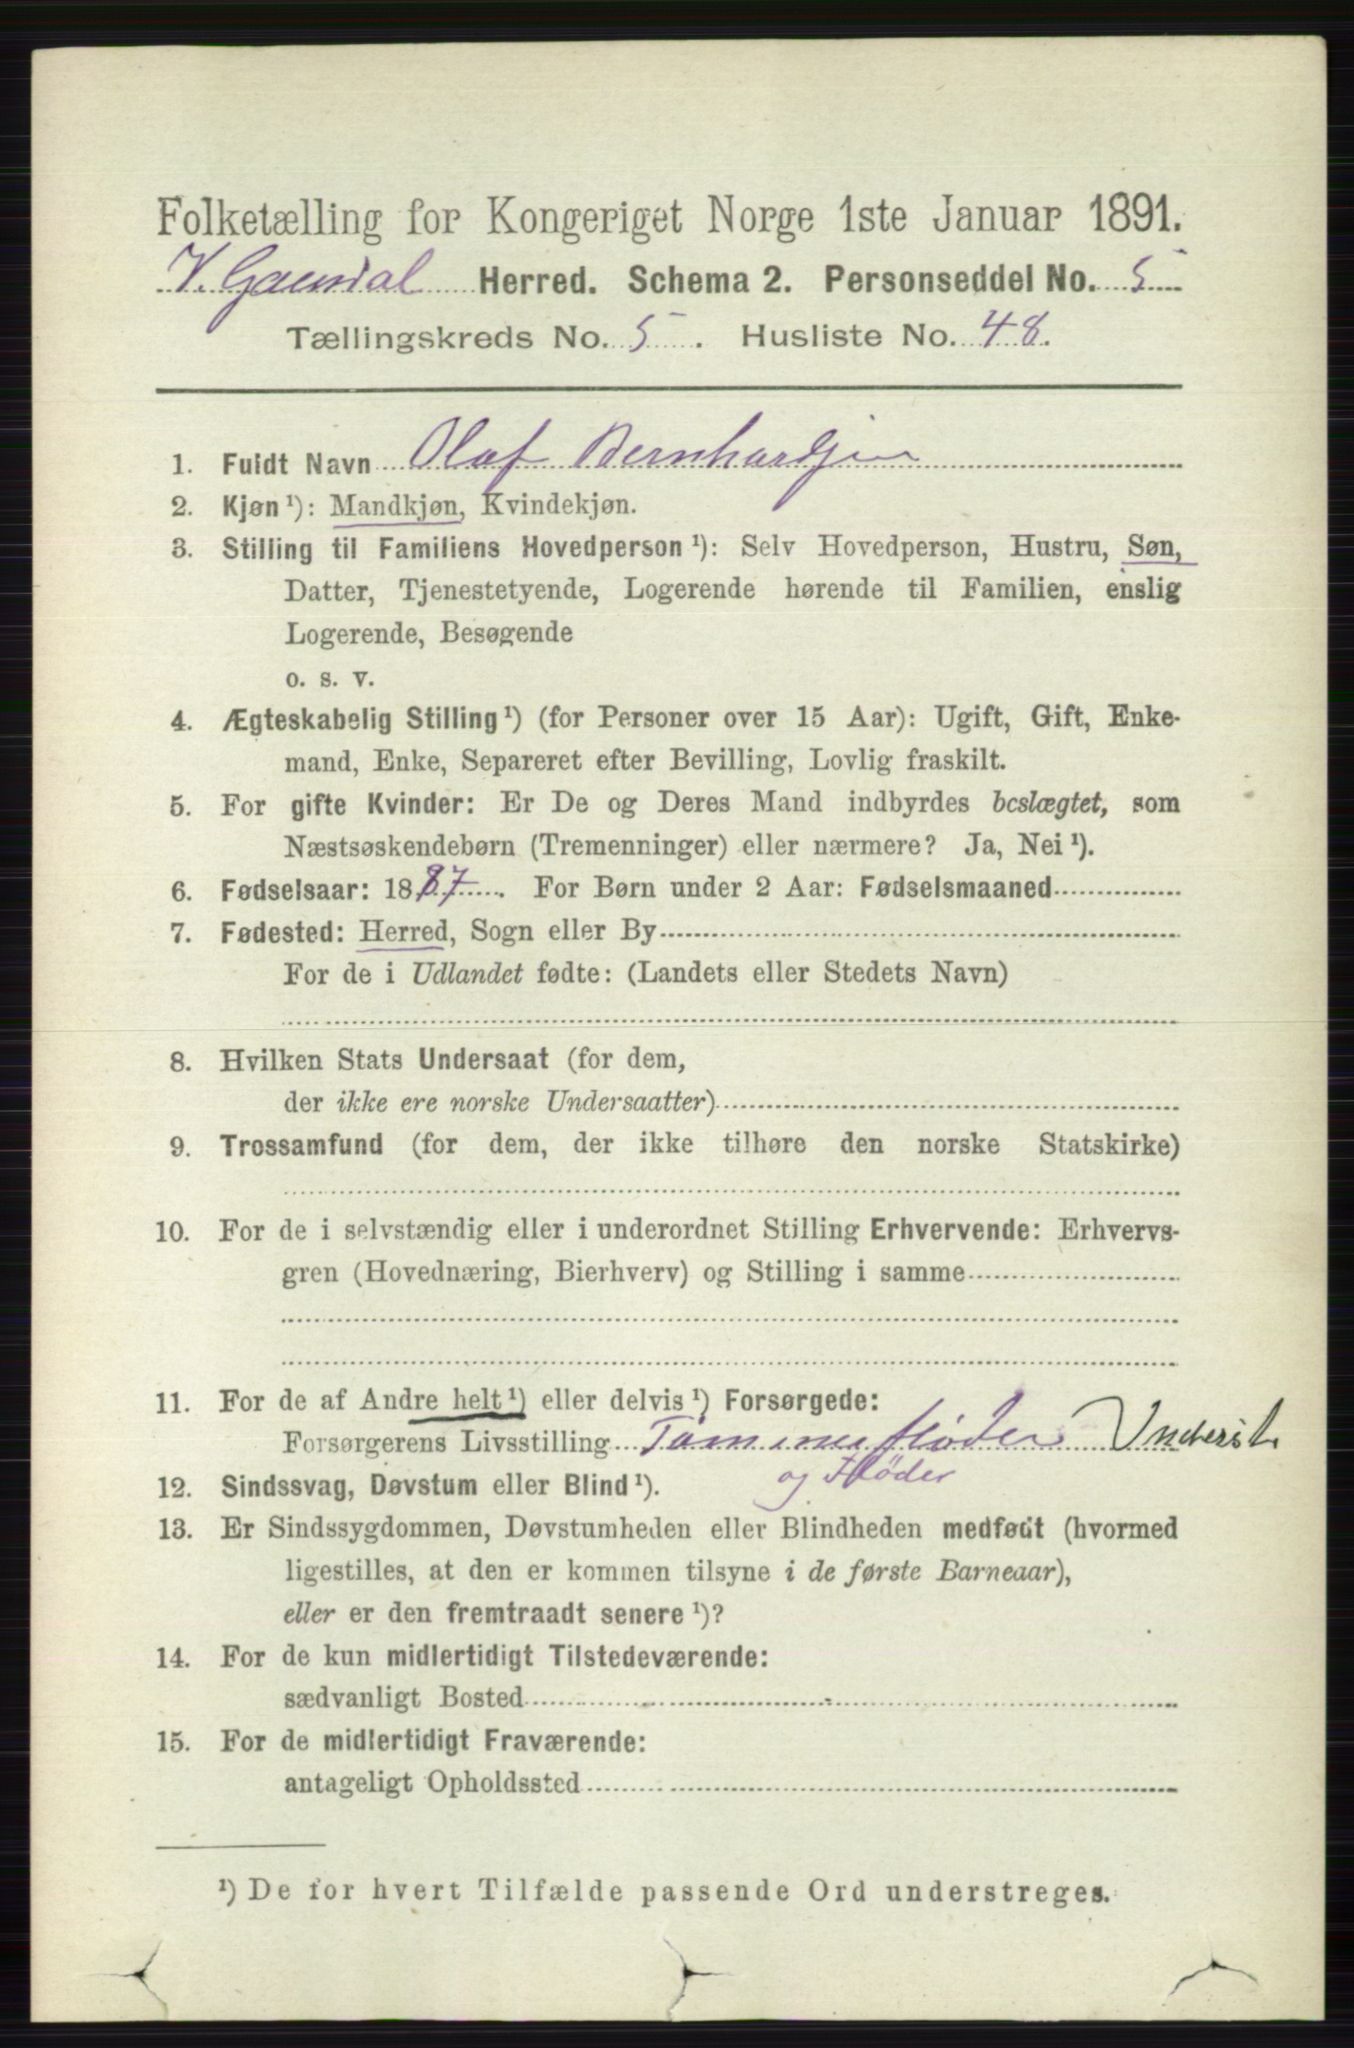 Folketælling for Kongeriget Norge 1ste Januar 1891.
V. Gausdal Herred. Schema 2. Personseddel No. 5
Tællingskreds No. 5. Husliste No. 48.
1. Fuldt Navn Olaf Bernhardsen
2. Kjøn¹): Mandkjøn, Kvindekjøn.
3. Stilling til Familiens Hovedperson¹): Selv Hovedperson, Hustru, Søn,
Datter, Tjenestetyende, Logerende hørende til Familien, enslig
Logerende, Besøgende
o. s. v.
4. Ægteskabelig Stilling¹) (for Personer over 15 Aar): Ugift, Gift, Enke-
mand, Enke, Separeret efter Bevilling, Lovlig fraskilt.
5. For gifte Kvinder: Er De og Deres Mand indbyrdes beslægtet, som
Næstsøskendebørn (Tremenninger) eller nærmere? Ja, Nei¹).
6. Fødselsaar: 1887. For Børn under 2 Aar: Fødselsmaaned
7. Fødested: Herred, Sogn eller By
For de i Udlandet fødte: (Landets eller Stedets Navn)
8. Hvilken Stats Undersaat (for dem,
der ikke ere norske Undersaatter)
9. Trossamfund (for dem, der ikke tilhøre den norske Statskirke)
10. For de i selvstændig eller i underordnet Stilling Erhvervende: Erhvervs-
gren (Hovednæring, Bierhverv) og Stilling i samme
11. For de af Andre helt¹) eller delvis¹) Forsørgede:
Forsørgerens Livsstilling Tømmerfløder
og Fløder
12. Sindssvag, Døvstum eller Blind¹).
13. Er Sindssygdommen, Døvstumheden eller Blindheden medfødt (hvormed
ligestilles, at den er kommen tilsyne i de første Barneaar),
eller er den fremtraadt senere¹)?
14. For de kun midlertidigt Tilstedeværende:
sædvanligt Bosted
15. For de midlertidigt Fraværende:
antageligt Opholdssted
¹) De for hvert Tilfælde passende Ord understreges.